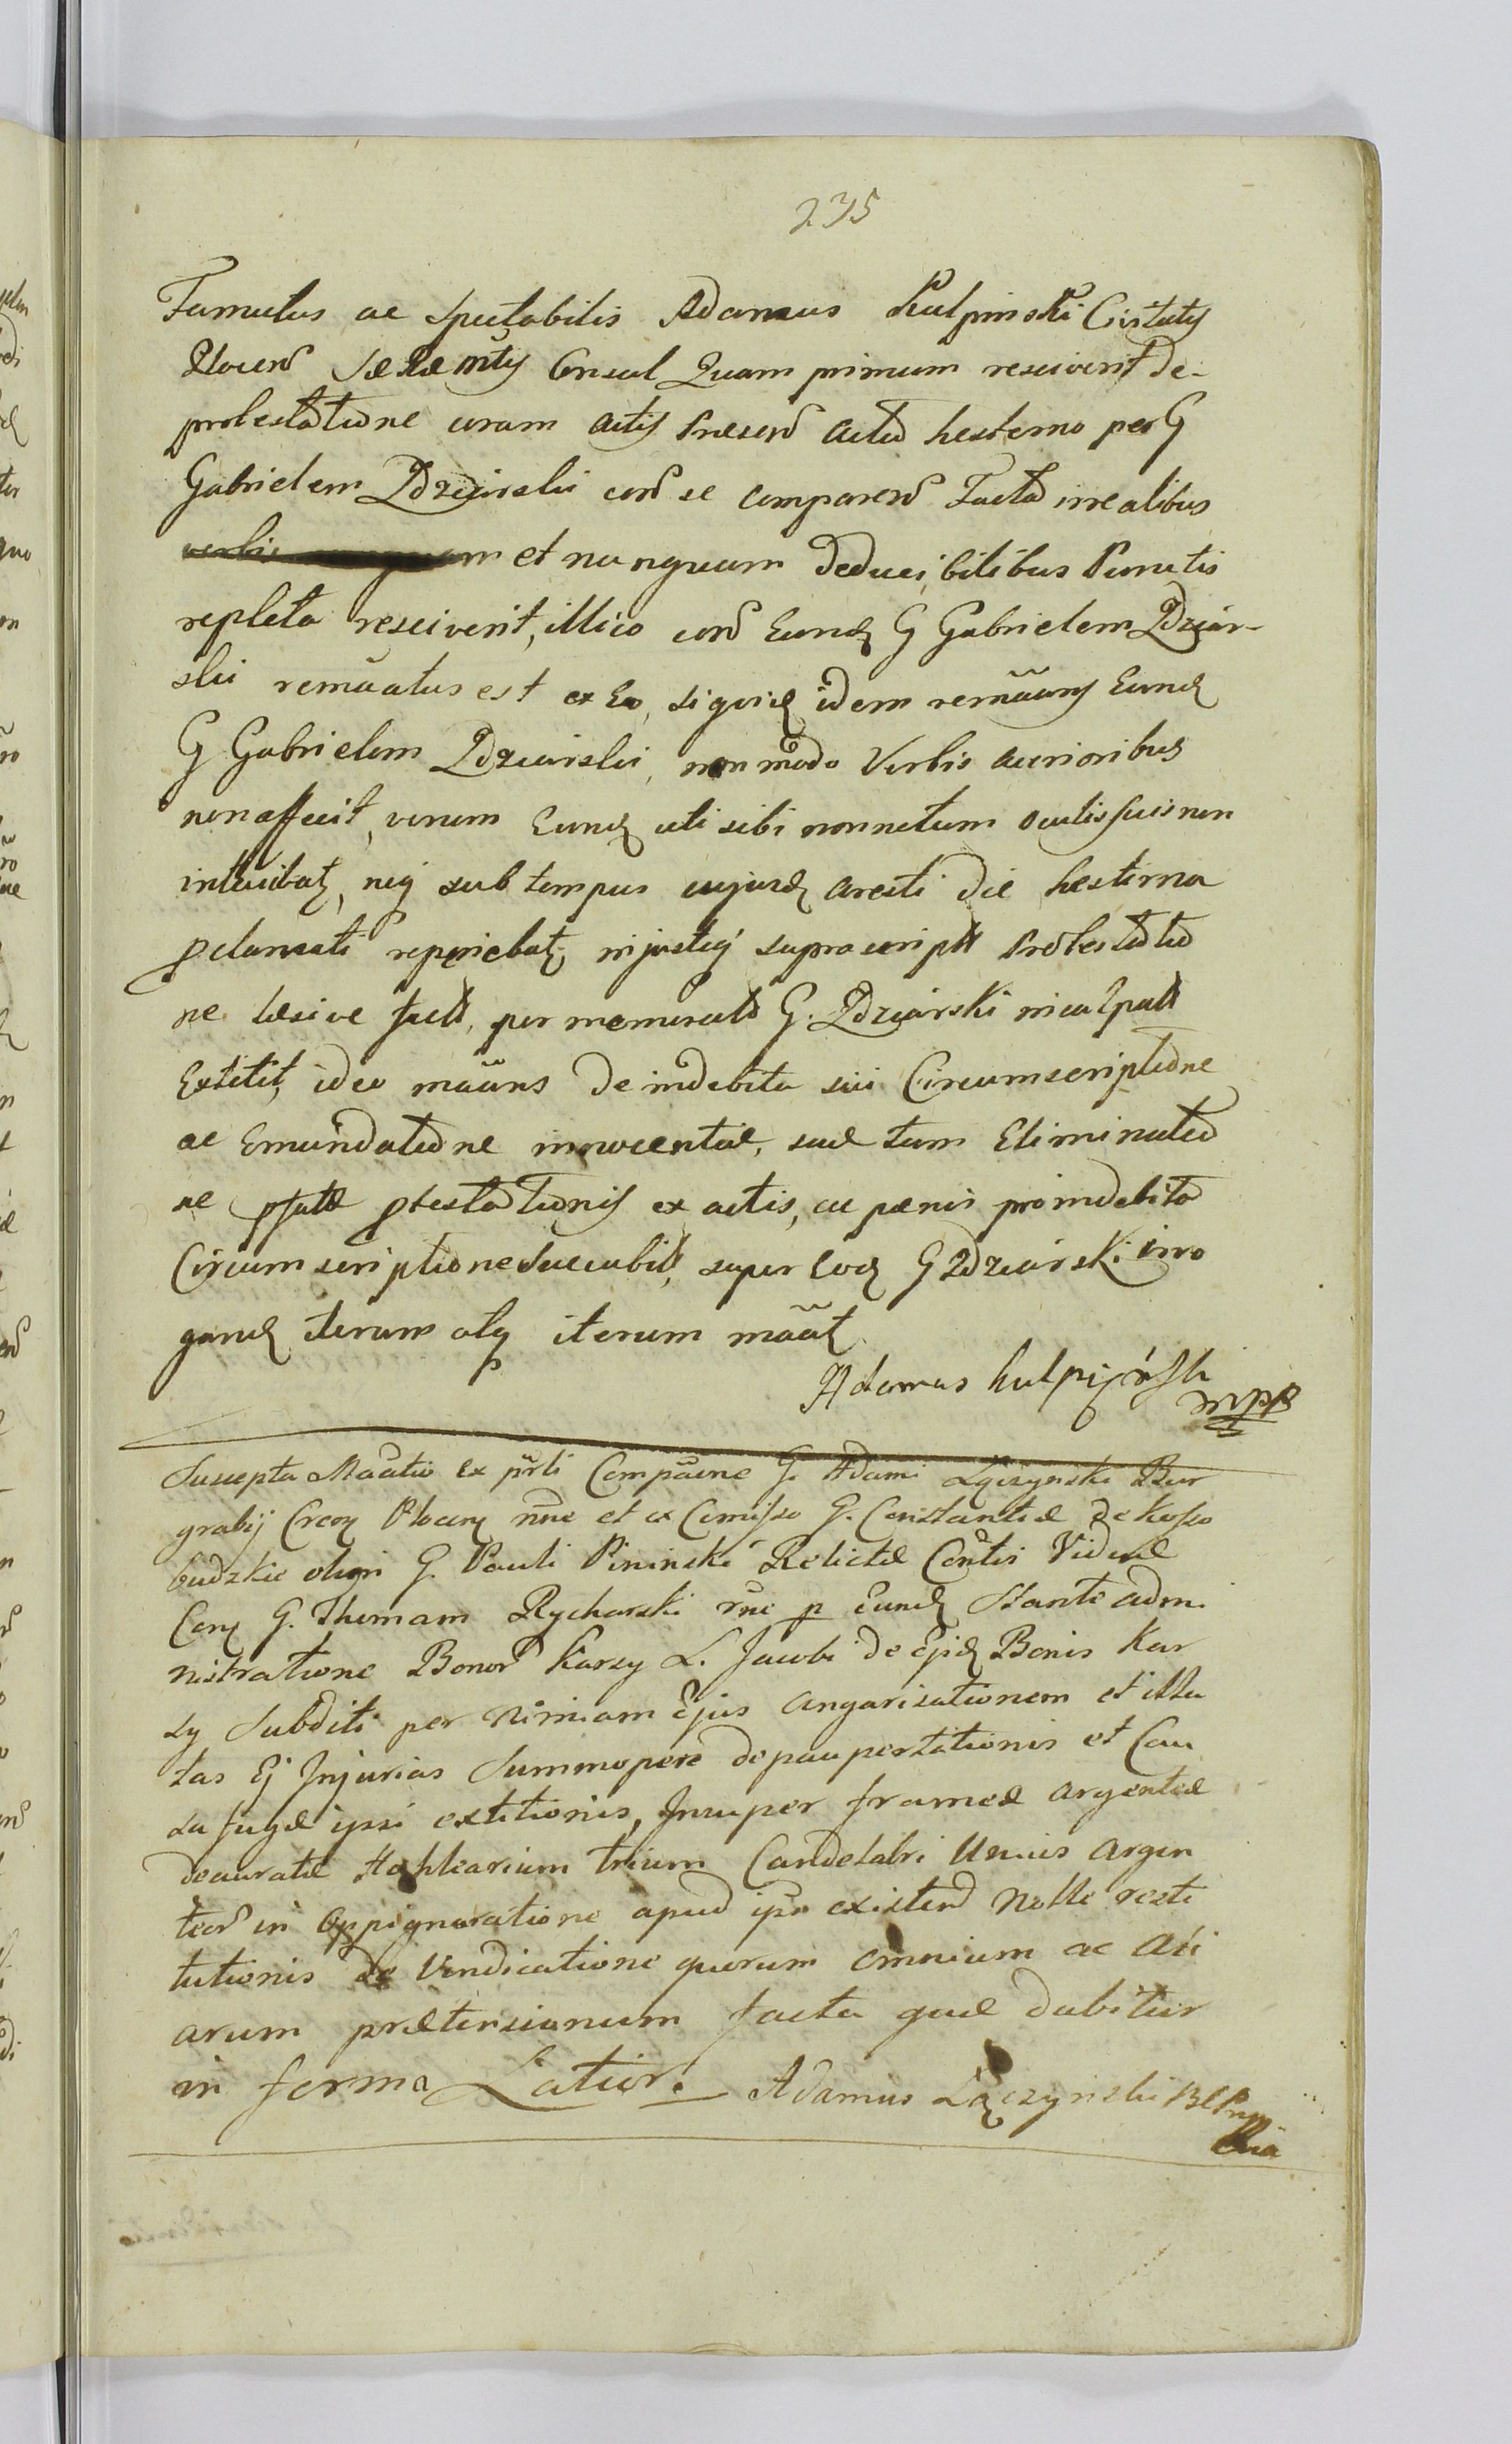 235
Famatus ac Spectabilis Adamus Kulpinski Civitatis
Plocen Sae Rae Mtis Consul Quam primum resciverit de-
protestatione coram actis Praesen actu hesterno per G
Gabrielem Zdziarski con se comparen Facta irrealibus
et nunquam deducibilibus Punctis
repleta resciverit, illico con Eund G Gabrielem Zdziar-
ski remãatus est ex Eo, siquid idem remãans Eund
G Gabrielem Zdziarski, non modo Verbis acrioribus
non affecit, verum Eund uti sibi non notum oculis suis non
intuebat, neq sub tempus cujusd aresti die hesterna
pclamati reperiebat, injusteq supra script Protestatio
ne lesive fact, per memorat G. Zdziarski inculpat
Extitit, ideo mãans de indebita sui Circumscriptione
ac Emundatione innocentiae, suae tum Eliminatio
ne pfatae ptestationis ex actis, ac paenis pro indebita
Circumscriptione Succubit, super Eod G Zdziarski irro
gand iterum atq iterum mãat
Adamus Kulpiński
mpp
Suscepta Mãatio ex prti Compãone G. Adami Łączynski Bur
grabij Crens Plocens nne et ex Comisso G. Constantiae de Kosso
budzkie olim G. Pauli Pininski Relictae Contis Viduae
Con G. Thomam Rycharski rne p Eund Stante admi
nistratione Bonor Karsy L. Jacobi de Ejusd Bonis Kar
sy Subditi per nimiam Ejus angarisationem et illa
tas Ej Injurias Summopere depaupertationis et Cau
sa fugae ipsi extitionis, Insuper frameae argenteae
deauratae Kochlearium trium Candelabri Unius argen
teor in oppignoratione apud ipsu existen Nolle resti
tutionis de Vendicatione quorum omnium ac Ali
arum praetensionum facta quae dabitur
in forma Latiori Adamus Łączynski BC